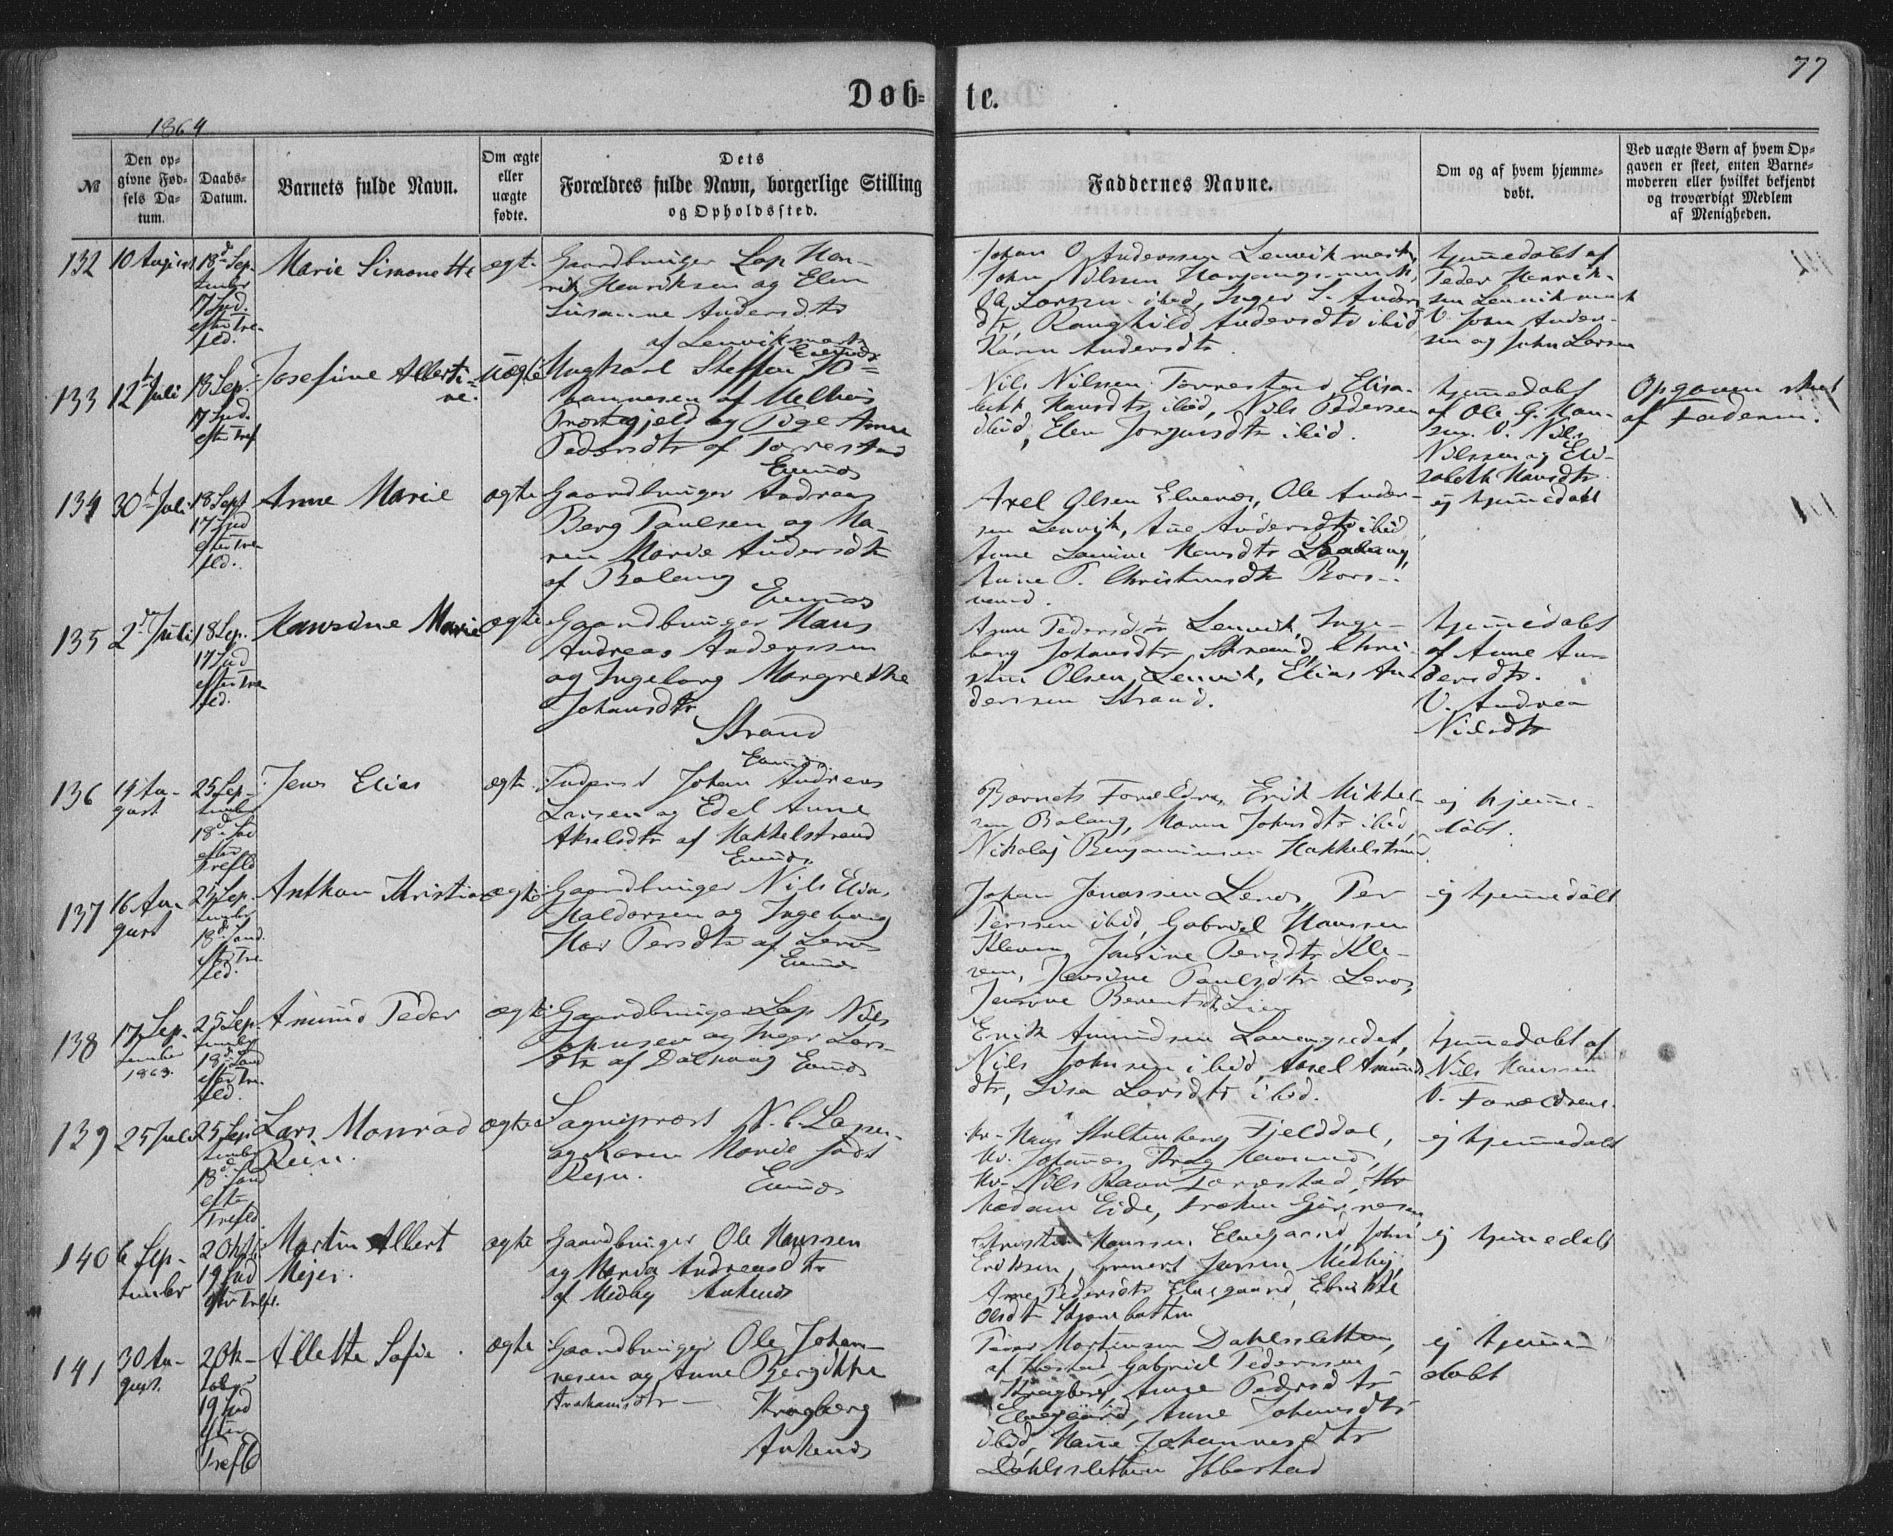 77
Døb-
te.
1864
№
Den op-
givne Fød-
sels Da-
tum.
Daabs-
Datum.
Barnets fulde Navn.
Om ægte
eller
uægte
fødte.
Dets
Forældres fulde Navn, borgerlige Stilling
og Opholdssted.
Faddernes Navne.
Om og af hvem hjemme-
døbt.
Ved uægte Børn af hvem Op-
gaven er skeet, enten Barne-
moderen eller hvilket bekjendt
og troværdigt Medlem
af Menigheden.
132
10 August
18de Sep-
tember
17 Snd.
efter Tre-
fld.
Marie Simonette
ægte
Gaardbruger Lap Hen-
rik Henriksen og Elen
Susanne Andersdtr
af Lenvikmark
Evenæs
Johan O Anderssen Lenvikmark,
John Nilssen
Larssen ibid, Inger S. Anders
dtr, Ranghild Andersdtr ibid
Karen Andersdtr.
hjemmedøbt af
Peder Henrik-
sen Lenvikmark
V. John Ander-
sen og John Larsen
133
12te Juli
18 Sep.
17 Snd.
efter Tref
Josefine Alberti-
ne.
uægte
Ungkarl Steffen Jo-
hannesen af Melbos
Præstegjeld og Pige Anne
Pedersdtr af Torrestad
Evenæs
Nils Nilssen Torrestad, Elisa-
beth Hansdtr ibid, Nils Pedersen
ibid, Elen Jørgensdtr ibid.
hjemmedøbt
af Ole G. Han-
sen. V. Nils
Nilssen og Eli-
zabeth Hansdtr
Opgaven skeet
af Faderen.
134
30te Juli
18 Sept
17 Snd
efter Tre
fld.
Anne Marie
ægte
Gaardbruger Andreas
Berg Paulsen og Ma-
ren Marie Andersdtr
af Balang
Evenæs
Axel Olsen Elvenæs, Ole Ander-
sen Lenvik, Ane Andersdtr ibid
Anne Hansdtr
Anne P. Christensdtr Bors-
vand.
ej hjemmedøbt
135
2den Juli
18 Sep.
17 Snd
efter Tre
fld.
Hansine Marie
ægte
Gaardbruger Hans
Andreas Anderssen
og Ingeborg Margrethe
Johansdtr
Strand
Evenæs
Anne Pedersdtr Lenvik, Inge-
borg Johansdtr Strand, Chri-
stin Olsen Lenvik, Elias An-
derssen Strand.
hjemmedøbt
af Anne An-
dersdtr.
V. Andrea
Nilsdtr
136
14 Au-
gust
25 Sep-
tember
18de Snd
efter
Trefld
Jens Elias
ægte
Inderst Johan Andreas
Larsen og Edel Anne
Akselsdtr af Hakkelstrand
Evenæs.
Barnets Forældre, Erik Mikkel-
sen Balang, Maren Johnsdtr ibid
Nikolaj Benjaminsen Hakkelstrand
ej hjemme-
døbt.
137
16 Au-
gust
25 Sep-
tember
18de Sønd.
efter Tre-
fld.
Anthon Kristian
ægte
Gaardbruger Nils Elias
Haldorsen og Ingeborg
Persdtr af Lenes
Evenæs
Johan Jonassen Lenes, Per
Perssen ibid, Gabriel Hanssen
Kleven, Jensine Persdtr Kle-
ven, Jensine Paulsdtr Lenes,
Jensine Berentsdtr Lien
ej hjemmedøbt
138
17 Sep-
tember
1863.
25 Sep-
tember
18de Sønd
efter Tre
fld.
Amund Peder
ægte
Gaardbruger Lap Nils
Johnsen og Inger Lars-
dtr af Dalvang Evenæs
Erik Amundsen
Nils Johnsen ibid, Amund
dtr, Lisa Larsdtr ibid.
hjemmedøbt af
Nils Hanssen
V. Forældrene.
139
25 Juli
25 Sep-
tember
18de Sønd
efter
Trefld.
Lars Monrad
Rein.
ægte
Sogneprest N. C.
og Karen Marie
Rejn.
Evenæs
Hr. Hans Stoltenberg Fjelddal,
Hr. Johannes
Hr. Nils Ravn Torrestad,
Madam Eide, Frøken
ej hjemmedøbt
140
6 Sep-
tember
2 Okt
19 Snd
eftr Trefl.
Martin Albert
Mejer.
ægte
Gaardbruger Ole Hanssen
og Maria Andreasdtr
af Midby Ankenæs
Kristen Hanssen Elvegaard, John
Eriksen, Jensen Midby,
Anne Pedersdtr Elvegaard,
Olsdtr
ej hjemmedøbt
141
30 Au-
gust.
2 Ok-
tober
19 Snd
efter
Trefld
Alette Sofie
ægte
Gaardbruger Ole Johan-
nesen og Anne Bergitte
Arahamsdtr
Kragberg
Ankenæs
Peder Mortensen Dahlsletten,
af Ibestad, Gabriel Pederssen
Kragberg, Anne Pedersdtr
Elvegaard, Anne Johansdtr
ibid, Hanne Johannesdtr
Dahlsletten Ibbestad
ej hjemme-
døbt